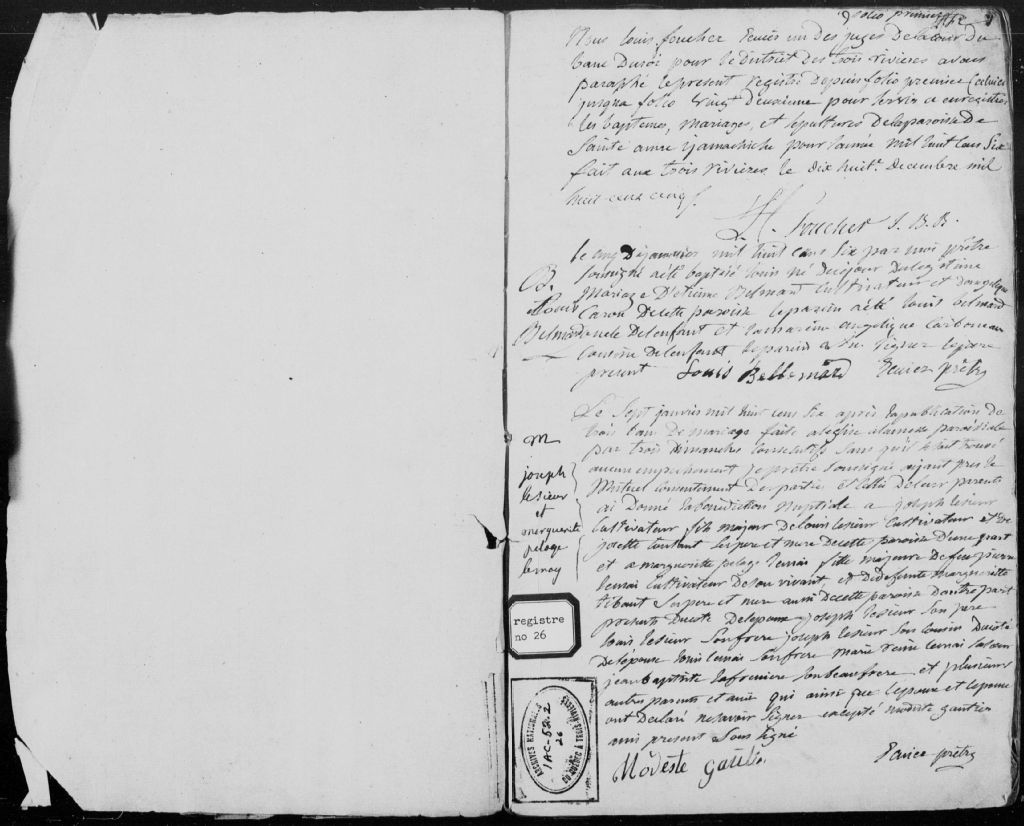 folio premier
Nous Louis foucher Ecuier un des juges de la Cour du
banc Du roi pour le District des trois rivieres avons
paraphé le present registre depuis folio premier
jusqu'a folio vingt Deuxieme pour servir a enregistrer
les baptemes, mariages, et sepultures De la paroisse De
Sainte anne yamachiche pour l'année mil huit Cens Six
fait aux trois rivieres le dix huit Decembre mil
huit cens cinq
L. C. Foucher J. B. R.
le cinq De janvier mil huit cens Six par moi prêtre
soussigné a été baptisé louis né Du jour du legitime
Mariage D'etienne Belmard Cultivateur et D'angelique
Caron De cette paroisse le parein a été louis Belmard
oncle De l'enfant et la mareine angelique Carboneau
Cousine De l'enfant le parein a Signer le pere
present Louis Bellemard Ecuier prêtre
B.
Louis
Belmard
Le Sept janvier mil huit cens Six après la publication De
trois bans De mariage faite a l'eglise a la messe paroissiale
par trois Dimanches Consecutifs Sans qu'il se Soit trouvé
aucun empechement je prêtre Soussigné aijant pris le
Mutuel Consentement Des parties et Celui De leur parents
ai Donné la benediction Nuptiale a joseph lesieur
Cultivateur fils majeur De louis lesieur Cultivateur et De
josette toutant Ses pere et mere De cette paroisse D'une part
et a margueritte pelage lemai fille majeure De feu pierre
lemai Cultivateur De Son vivant, et De defunte margueritte
tibaut Ses pere et mere aussi De cette paroisse D'autre part
presents Du coté De l'epoux joseph lesieur Son pere
louis lesieur Son frere joseph lesieur Son Cousin Du coté
De l'épouse louis lemai Son frere marie reine lemai Sa Soeur
jean baptiste lafreniere Son beaufrere et plusieurs
autres parents et amis qui ainsi que l'epoux et l'epouse
ont Declaré ne Savoir Signer excepté modeste gautier
ami present Soussigné
Modeste gautié
Ecuier prêtre
M
joseph
lesieur
et
merguerite
pelage
lemay
registre
no 26
ARCHIVES NATIONALES
1AC-52.2
26
DU QUEBEC A TROIS-RIVIERES